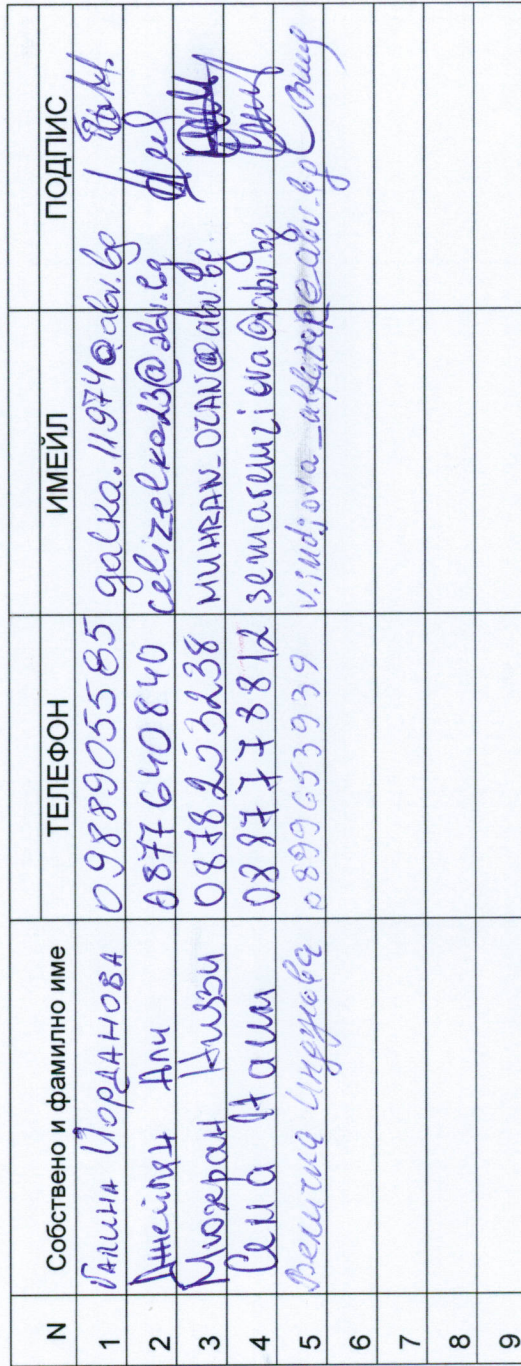 N Собствено и фамилно име ТЕЛЕФОН ИМЕЙЛ ПОДПИС
1 Галина Йорданова 0988905585 galka.11974@abv.bg
2 Джейлян Али 0877640840 celizelka23@abv.bg
3 Мюжеран Ниязи 0878253238 MUHRAN_OZAN@abv.bg.
4 Сема Наим 0887778812 semaremzieva@abv.bg
5 Величка Инджова 0899653939 v.indjova_@abv.bg
6
7
8
9